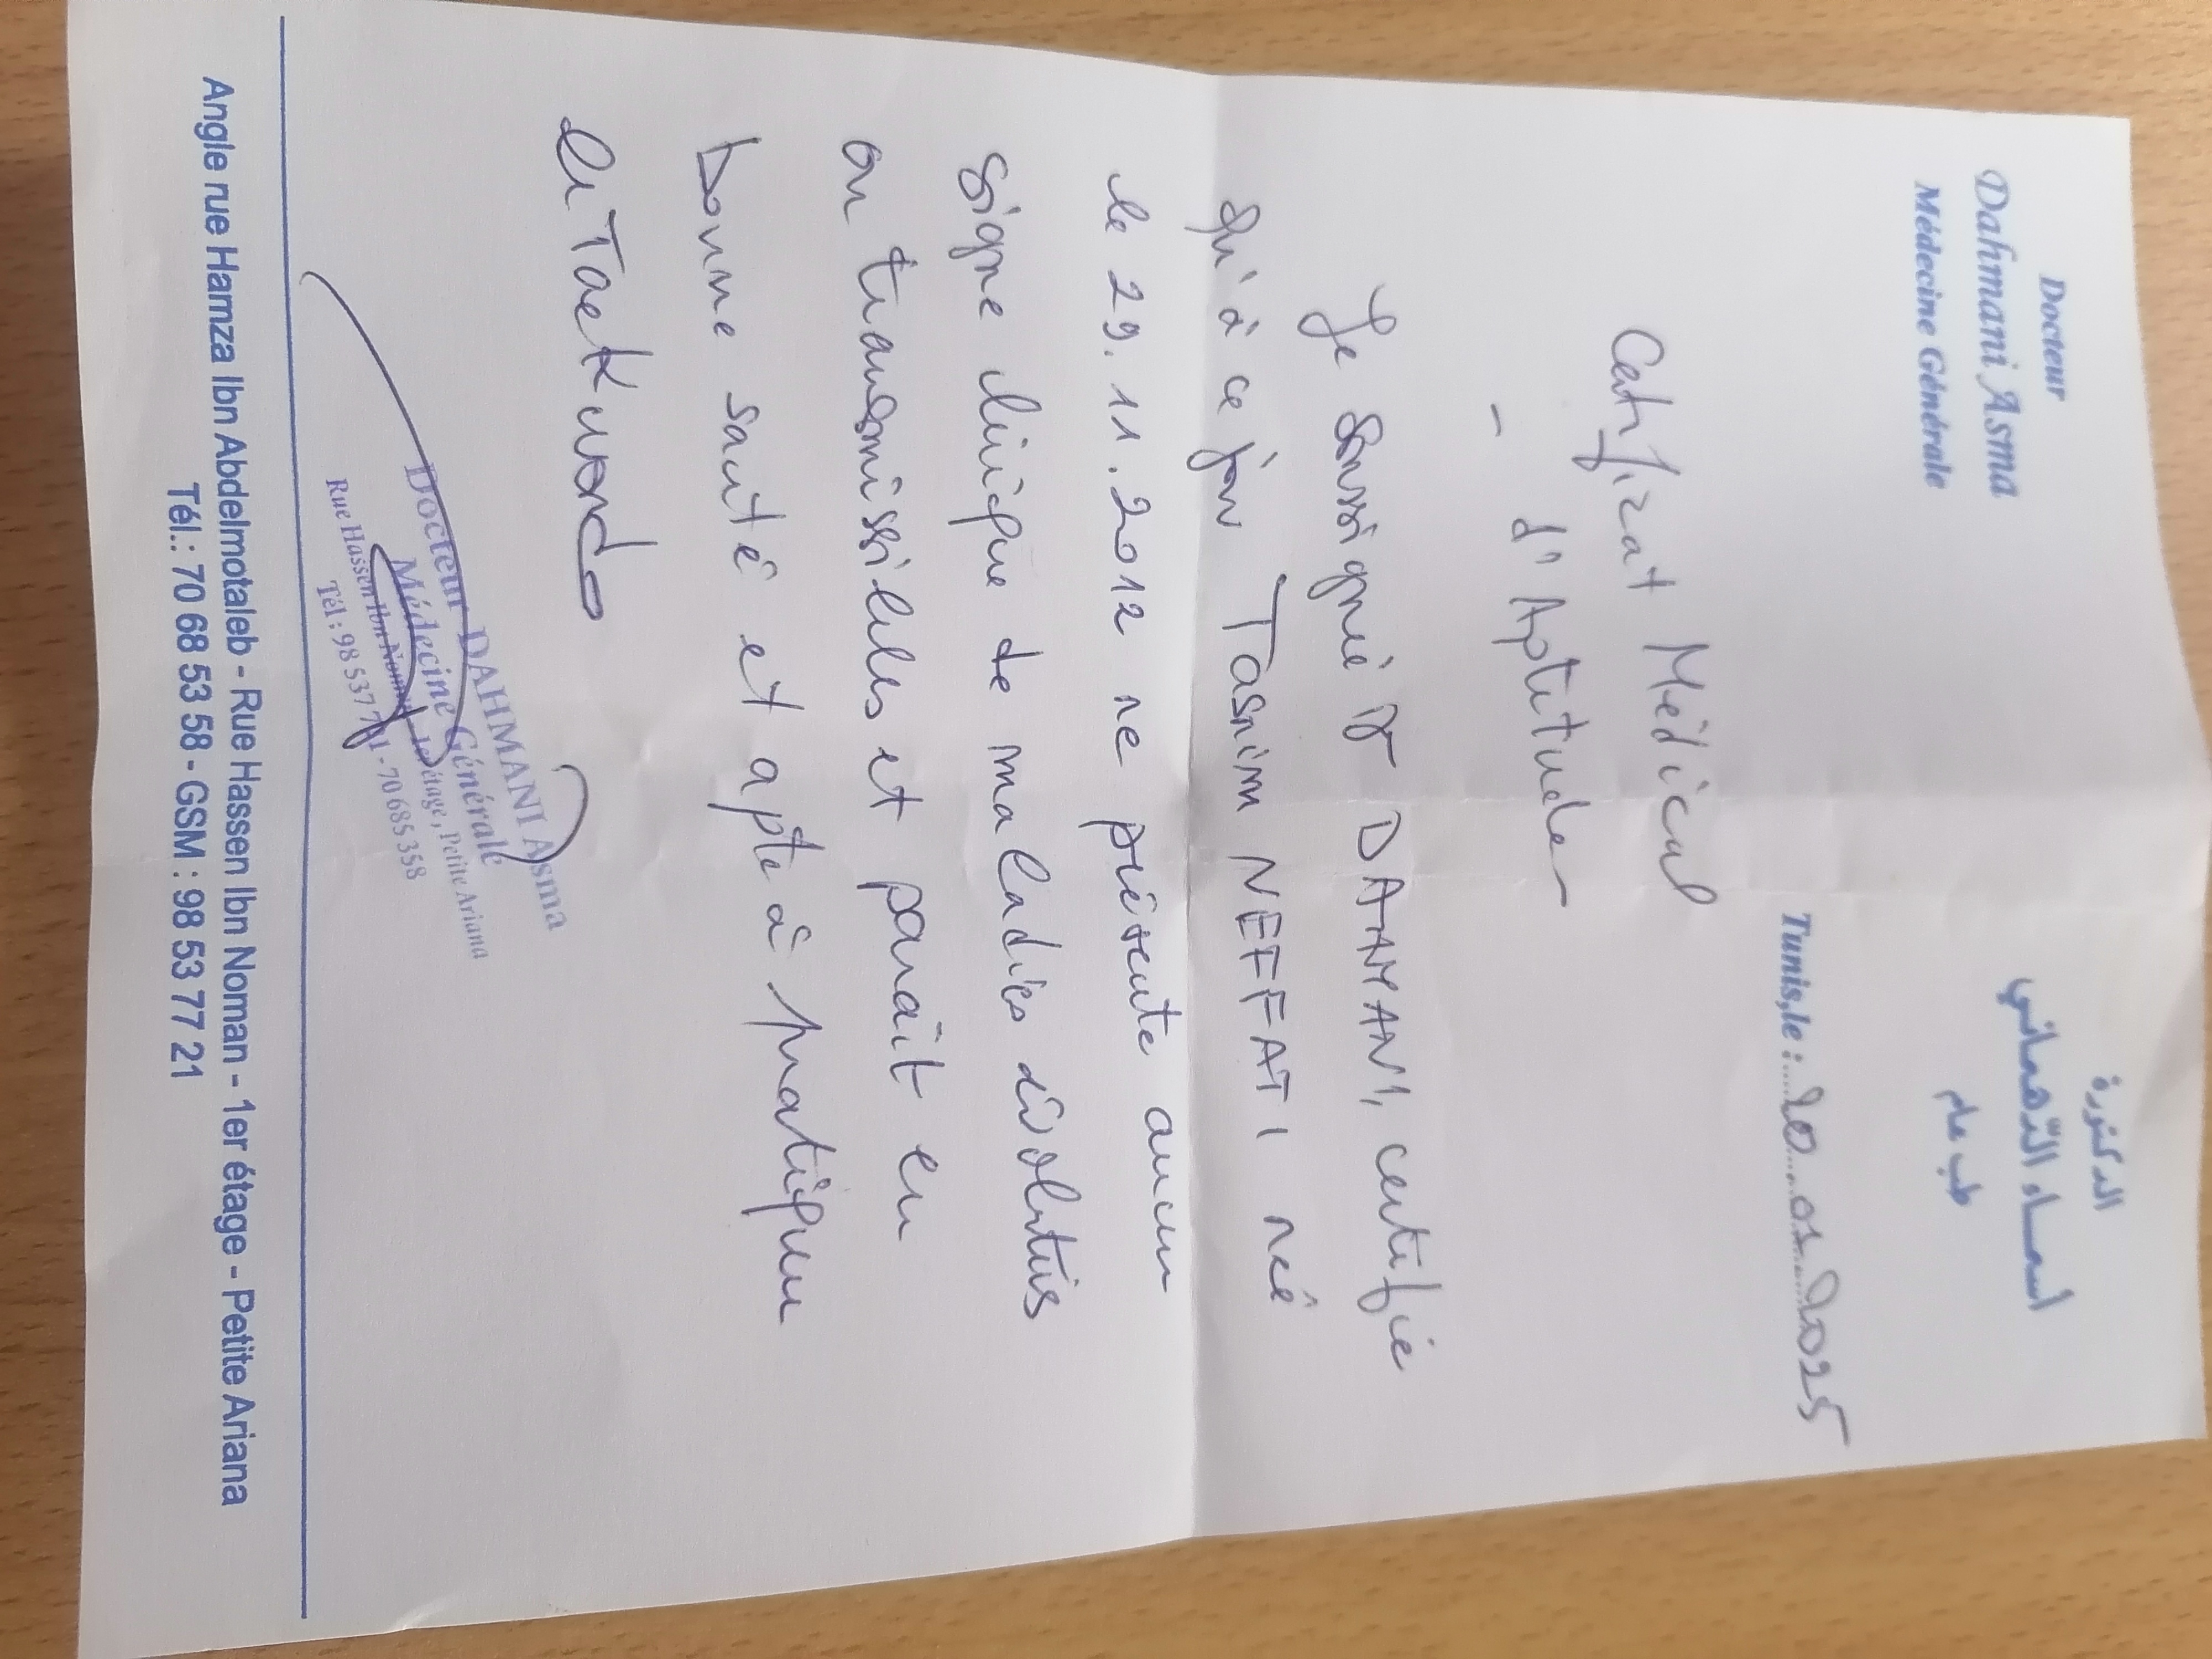 Docteur
Dahmani Asma
Médecine Générale
الدكتورة
أسماء الدّهماني
طب عام
Tunis,le : 20.01.2025
Certificat Médical
d'Aptitude
Je soussigné Dr DAHMANI, certifie
qu'à ce jour Tasnim NEFFATI né
le 29.11.2012 ne présente aucun
signe clinique de maladies évolutives
ou transmissibles et parait en
bonne santé et apte à pratiquer
le Taekwondo
Docteur DAHMANI Asma
Médecine Générale
Rue Hassen Ibn Noman, 1er étage, Petite Ariana
Tél : 98 537 721 - 70 685 358
Angle rue Hamza Ibn Abdelmotaleb - Rue Hassen Ibn Noman - 1er étage - Petite Ariana
Tél.: 70 68 53 58 - GSM : 98 53 77 21